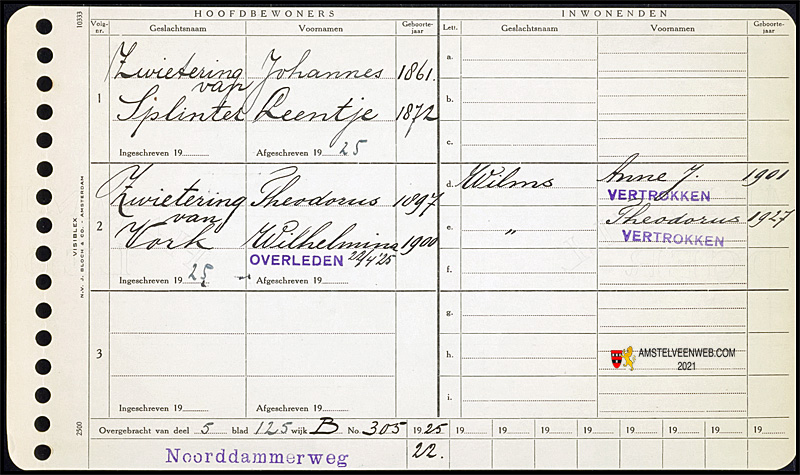 HOOFDBEWONERS
Volg-nr. Geslachtsnaam Voornamen Geboorte-jaar
1
Zwietering Johannes 1861.
van
Splinter Leentje 1872
Ingeschreven 19 Afgeschreven 19 25
2
Zwietering Theodorus 1897
van
Vork Wilhelmina 1900
OVERLEDEN 22/4'25
Ingeschreven 19 25 Afgeschreven 19
3
Ingeschreven 19 Afgeschreven 19
INWONENDEN
Lettr. Geslachtsnaam Voornamen Geboorte-jaar
a.
b.
c.
d. Wilms Anne J. 1901
VERTROKKEN
e. " Theodorus 1927
VERTROKKEN
f.
g.
h.
i.
AMSTELVEENWEB.COM
2021
Overgebracht van deel 5 blad 125 wijk B No. 305 1925 19 19 19 19 19 19 19 19
Noorddammerweg 22.
10333
VISIBLEX
N.V. J. BLOCH & CO., AMSTERDAM
2500